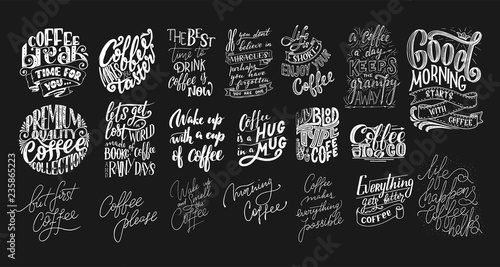 COFFEE
break
TIME FOR
YOU
Coffee
THE BEST
time to
DRINK
coffee
IS
NOW
If you don't
believe in
MIRACLES
perhaps
you have
forgotten
YOU ARE ONE
Life
IS
SHORT
ENJOY YOUR
Coffee
a
Coffee
a day
KEEPS
the
grumpy
AWAY
Good
MORNING
STARTS
WITH
COFFEE
PREMIUM
QUALITY
Coffee
COLLECTION
let's get
lost
WORLD
made
BOOKS
of
coffee
RAINY DAYS
Wake up
with a cup
of coffee
Coffee
is a HUG
IN A
MUG
MY BLOOD
TYPE
IS
COFFEE
Coffee
TO GO
but first
Coffee
Coffee
please
Wake up
and Smell
the
Coffee
morning
Coffee
Coffee
makes
everything
possible
Everything
gets better
with
COFFEE
life
happens
Coffee
helps
235865223